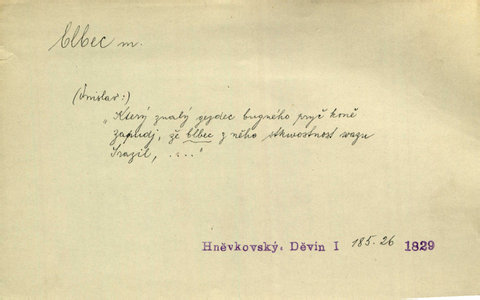 blbec m.
(Ctnislav:)
"Který znalý gezdec bugného pryč koně
zapudj, že blbec z něho skwostnost wazu
srazil, ....."
Hněvkovský: Děvin I 185.26 1829